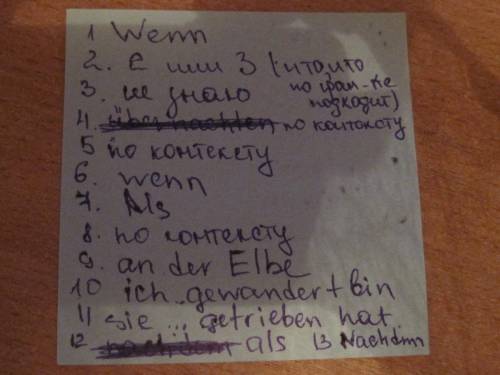 1 Wenn
2. Е или 3 (и то и то
по грам-ке
3. не знаю подходит)
4. übernachten по контексту
5 по контексту
6. wenn
7. Als
8. по контексту
9. an der Elbe
10 ich ..gewandert bin
11 sie ... getrieben hat
12 nachdem als 13 Nachdem